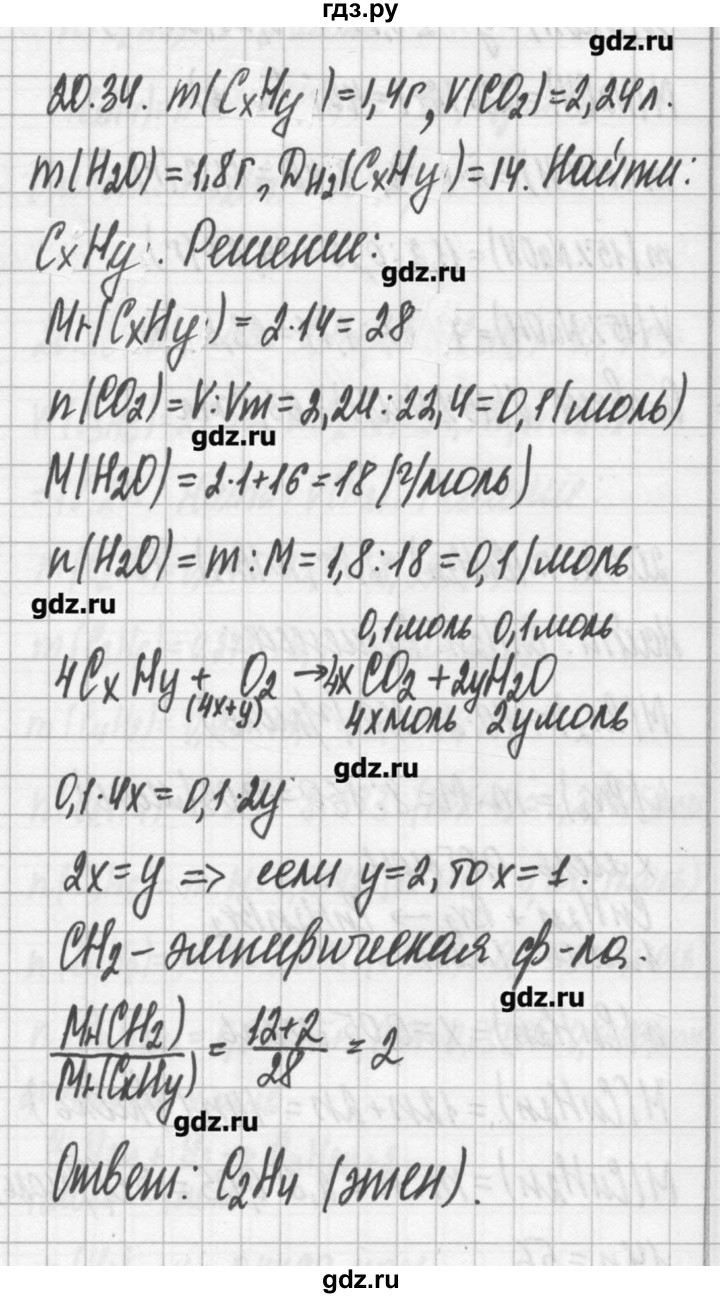 гдз.ру
gdz.ru
20.34. m(CxHy)=1,4г, V(CO2)=2,24л.
m(H2O)=1,8г, DH2(CxHy)=14. Найти:
CxHy. Решение:
gdz.ru
Mr(CxHy)=2·14=28
n(CO2)=V:Vm=2,24:22,4=0,1(моль)
gdz.ru
M(H2O)=2·1+16=18(г/моль)
n(H2O)=m:M=1,8:18=0,1(моль
gdz.ru
0,1моль 0,1моль
4CxHy + O2 →4xCO2+2yH2O
(4x+y) 4xмоль 2yмоль
gdz.ru
0,1·4x=0,1·2y
2x=y => если y=2, то x=1.
CH2-эмпирическая ф-ла.
gdz.ru
Mr(CH2)/Mr(CxHy) = 12+2/28 = 2
gdz.ru
Ответ: C2H4 (этен).
gdz.ru